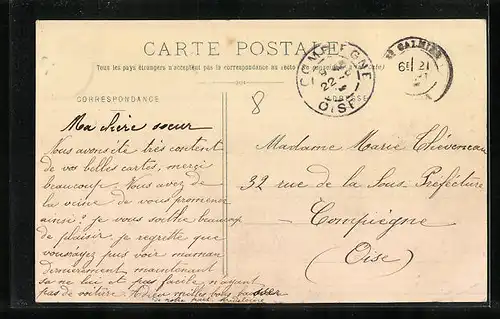 CARTE POSTALE
Tous les pays étrangers n'acceptent pas la correspondance au recto
CORRESPONDANCE
COMPIÈGNE
22
OISE
ST GALMIER
21
8
Ma chère sœur
Nous avons été très content
de vos belles cartes, merci
beaucoup. Vous avez de
la veine de vous promener
ainsi? je vous soithe beaucoup
de plaisir je regrette que
vous ayez pus voir maman
dernièrement maintenant
sa ne lui et pas facile n'ayant
pas de voiture. Adieu milles bons baiser
de notre part
Madame Marie Théveneau
32 rue de la Sous Préfecture
Compiègne
(Oise)